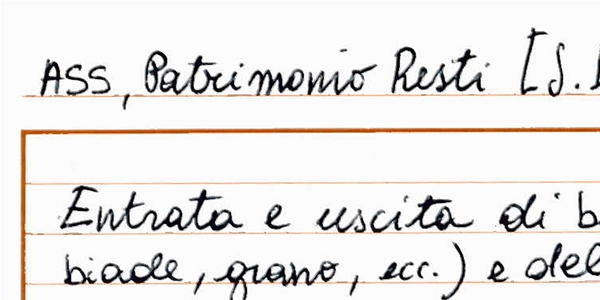 ASS, Patrimonio Resti [S.
Entrata e uscita di b
biade, grano, ecc.) e del